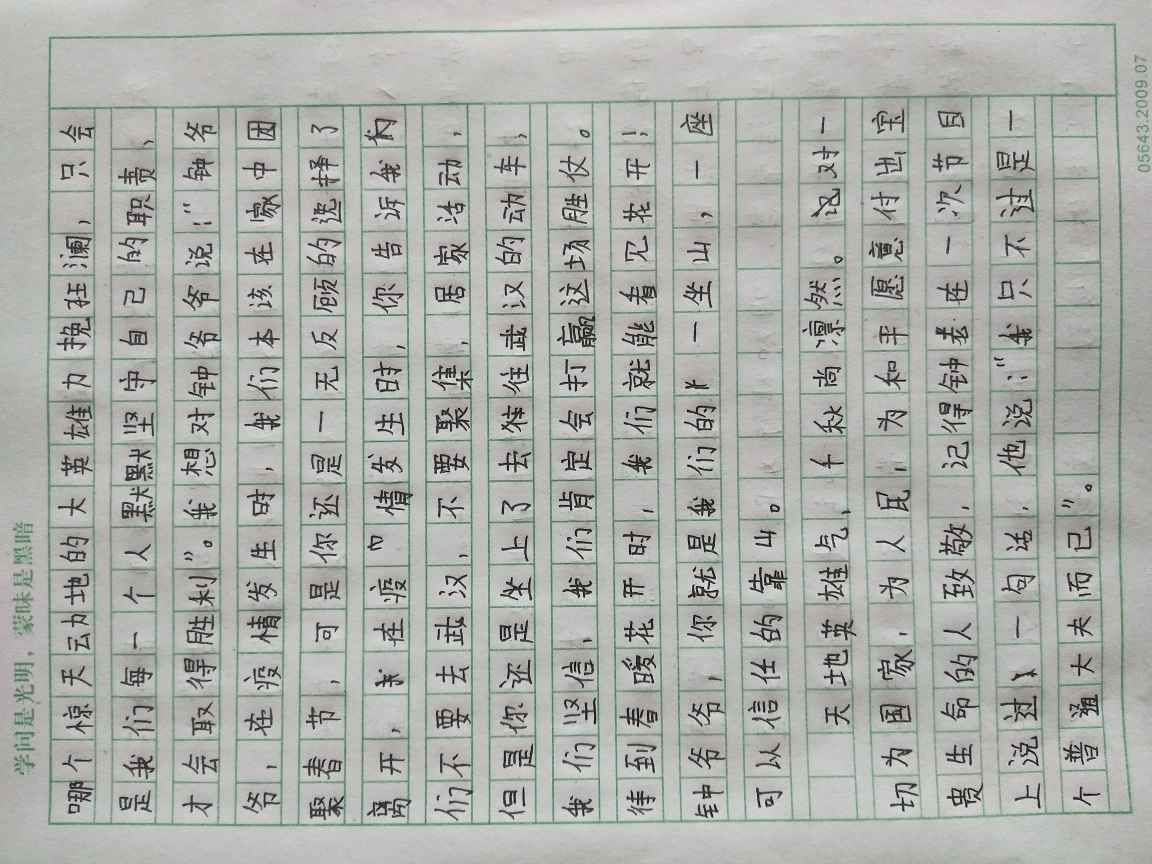 学问是光明，蒙昧是黑暗
哪个惊天动地的大英雄力挽狂澜，只会
是我们每一个人默默坚守自己的职责，
才会取得胜利”。我想对钟爷爷说：“钟爷
爷，在疫情发生时，我们本该在家中团
聚春节，可是你还是一无反顾的选择了
离开，在疫情发生时，你告诉我们
们不要去武汉，不要聚集，居家活动，
但是你还是坐上了去往武汉的动车，
我们坚信，我们肯定会打赢这场胜仗。
待到春暖花开时，我们就能看见花开！
钟爷爷，你就是我们的一坐山，一座
可以信任的靠山。
天地英雄气，千秋尚凛然。记对一
切为国家，为人民，为和平愿意付出宝
贵生命的人致敬，记得钟老在一次节目
上说过一句话，他说：“我只不过是一
个普通大夫而已”。
05643.2009.07